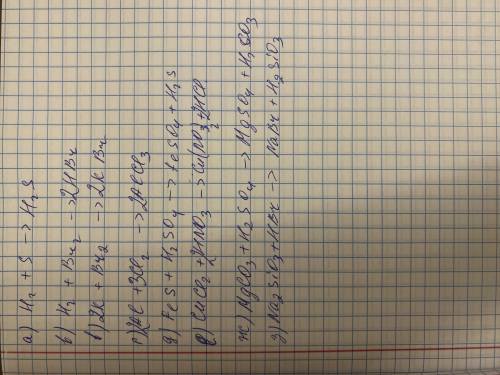 а) H₂ + S -> H₂S
б) H₂ + Br₂ -> 2HBr
в) 2K + Br₂ -> 2KBr
г) 2Al + 3Cl₂ -> 2AlCl₃
д) FeS + H₂SO₄ -> FeSO₄ + H₂S
е) CuCl₂ + 2HNO₃ -> Cu(NO₃)₂ + 2HCl
ж) MgCO₃ + H₂SO₄ -> MgSO₄ + H₂CO₃
з) Na₂SiO₃ + HBr -> NaBr + H₂SiO₃